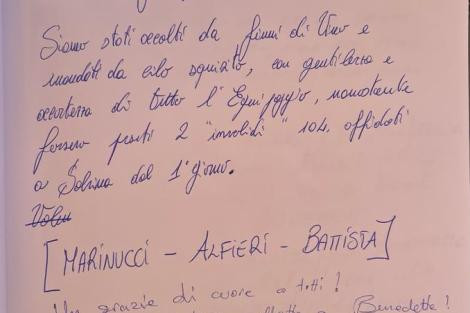 Siamo stati accolti da fiumi di Vino e
inondati da cibo squisito, con gentilezza e
accortezza di tutto l'Equipaggio, nonostante
fossero presenti 2 "invalidi" 104 affidati
a Sabrina dal 1° giorno.
[MARINUCCI - ALFIERI - BATTISTA]
Un grazie di cuore a tutti!
a Benedetta!